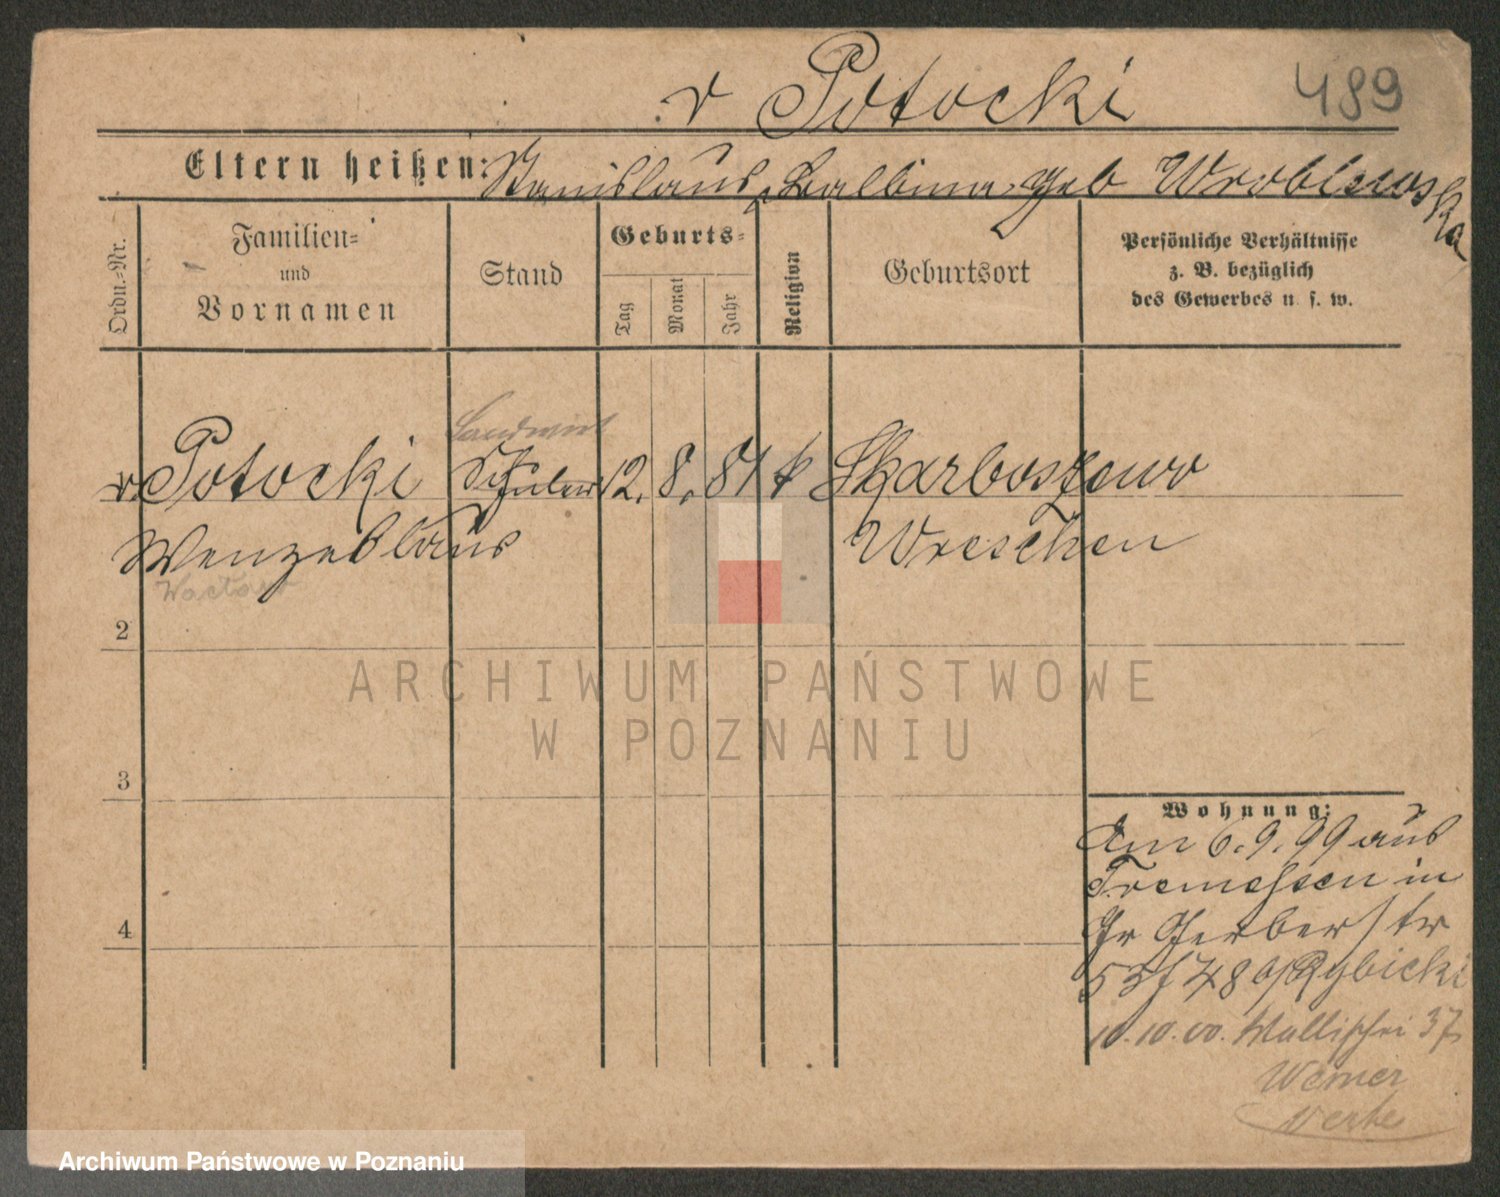 v Potocki 489
Eltern heißen: Stanislaus, Balbina, geb Wroblewska
Ordn.-Nr.
Familien-
und
Vornamen
Stand
Geburts-
Tag
Monat
Jahr
Religion
Geburtsort
Persönliche Verhältnisse
z. B. bezüglich
des Gewerbes u. s. w.
Landwirt
v. Potocki Schüler 12. 8. 81 k Skarboszewo
Wenzeslaus Wreschen
Wacław
2
3
4
Wohnung:
Am 6. 9. 99 aus
Tremessen in
Gr Gerberstr
53 48 b/Rybicki
10. 10. 00. Wallischei 37
ARCHIWUM PAŃSTWOWE
W POZNANIU
Archiwum Państwowe w Poznaniu